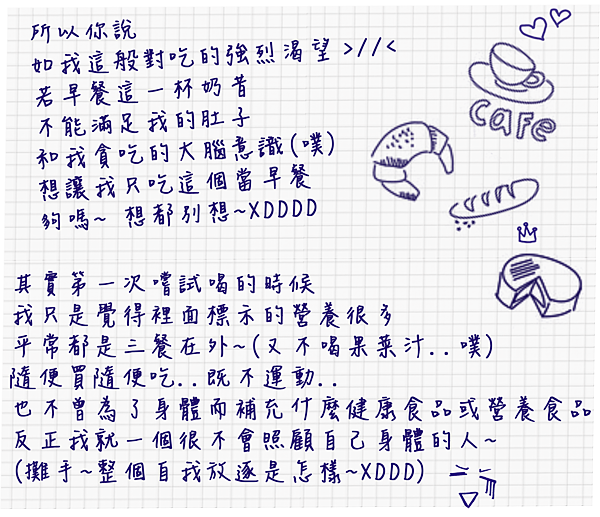 所以你說
如我這般對吃的強烈渴望 >//<
若早餐這一杯奶昔
不能滿足我的肚子
和我貪吃的大腦意識(噗)
想讓我只吃這個當早餐
夠嗎~ 想都別想~XDDDD
cafe
其實第一次嚐試喝的時候
我只是覺得裡面標示的營養很多
平常都是三餐在外~(又不喝果菜汁..噗)
隨便買隨便吃..既不運動..
也不曾為了身體而補充什麼健康食品或營養食品
反正我就一個很不會照顧自己身體的人~
(攤手~整個自我放逐是怎樣~XDDD)